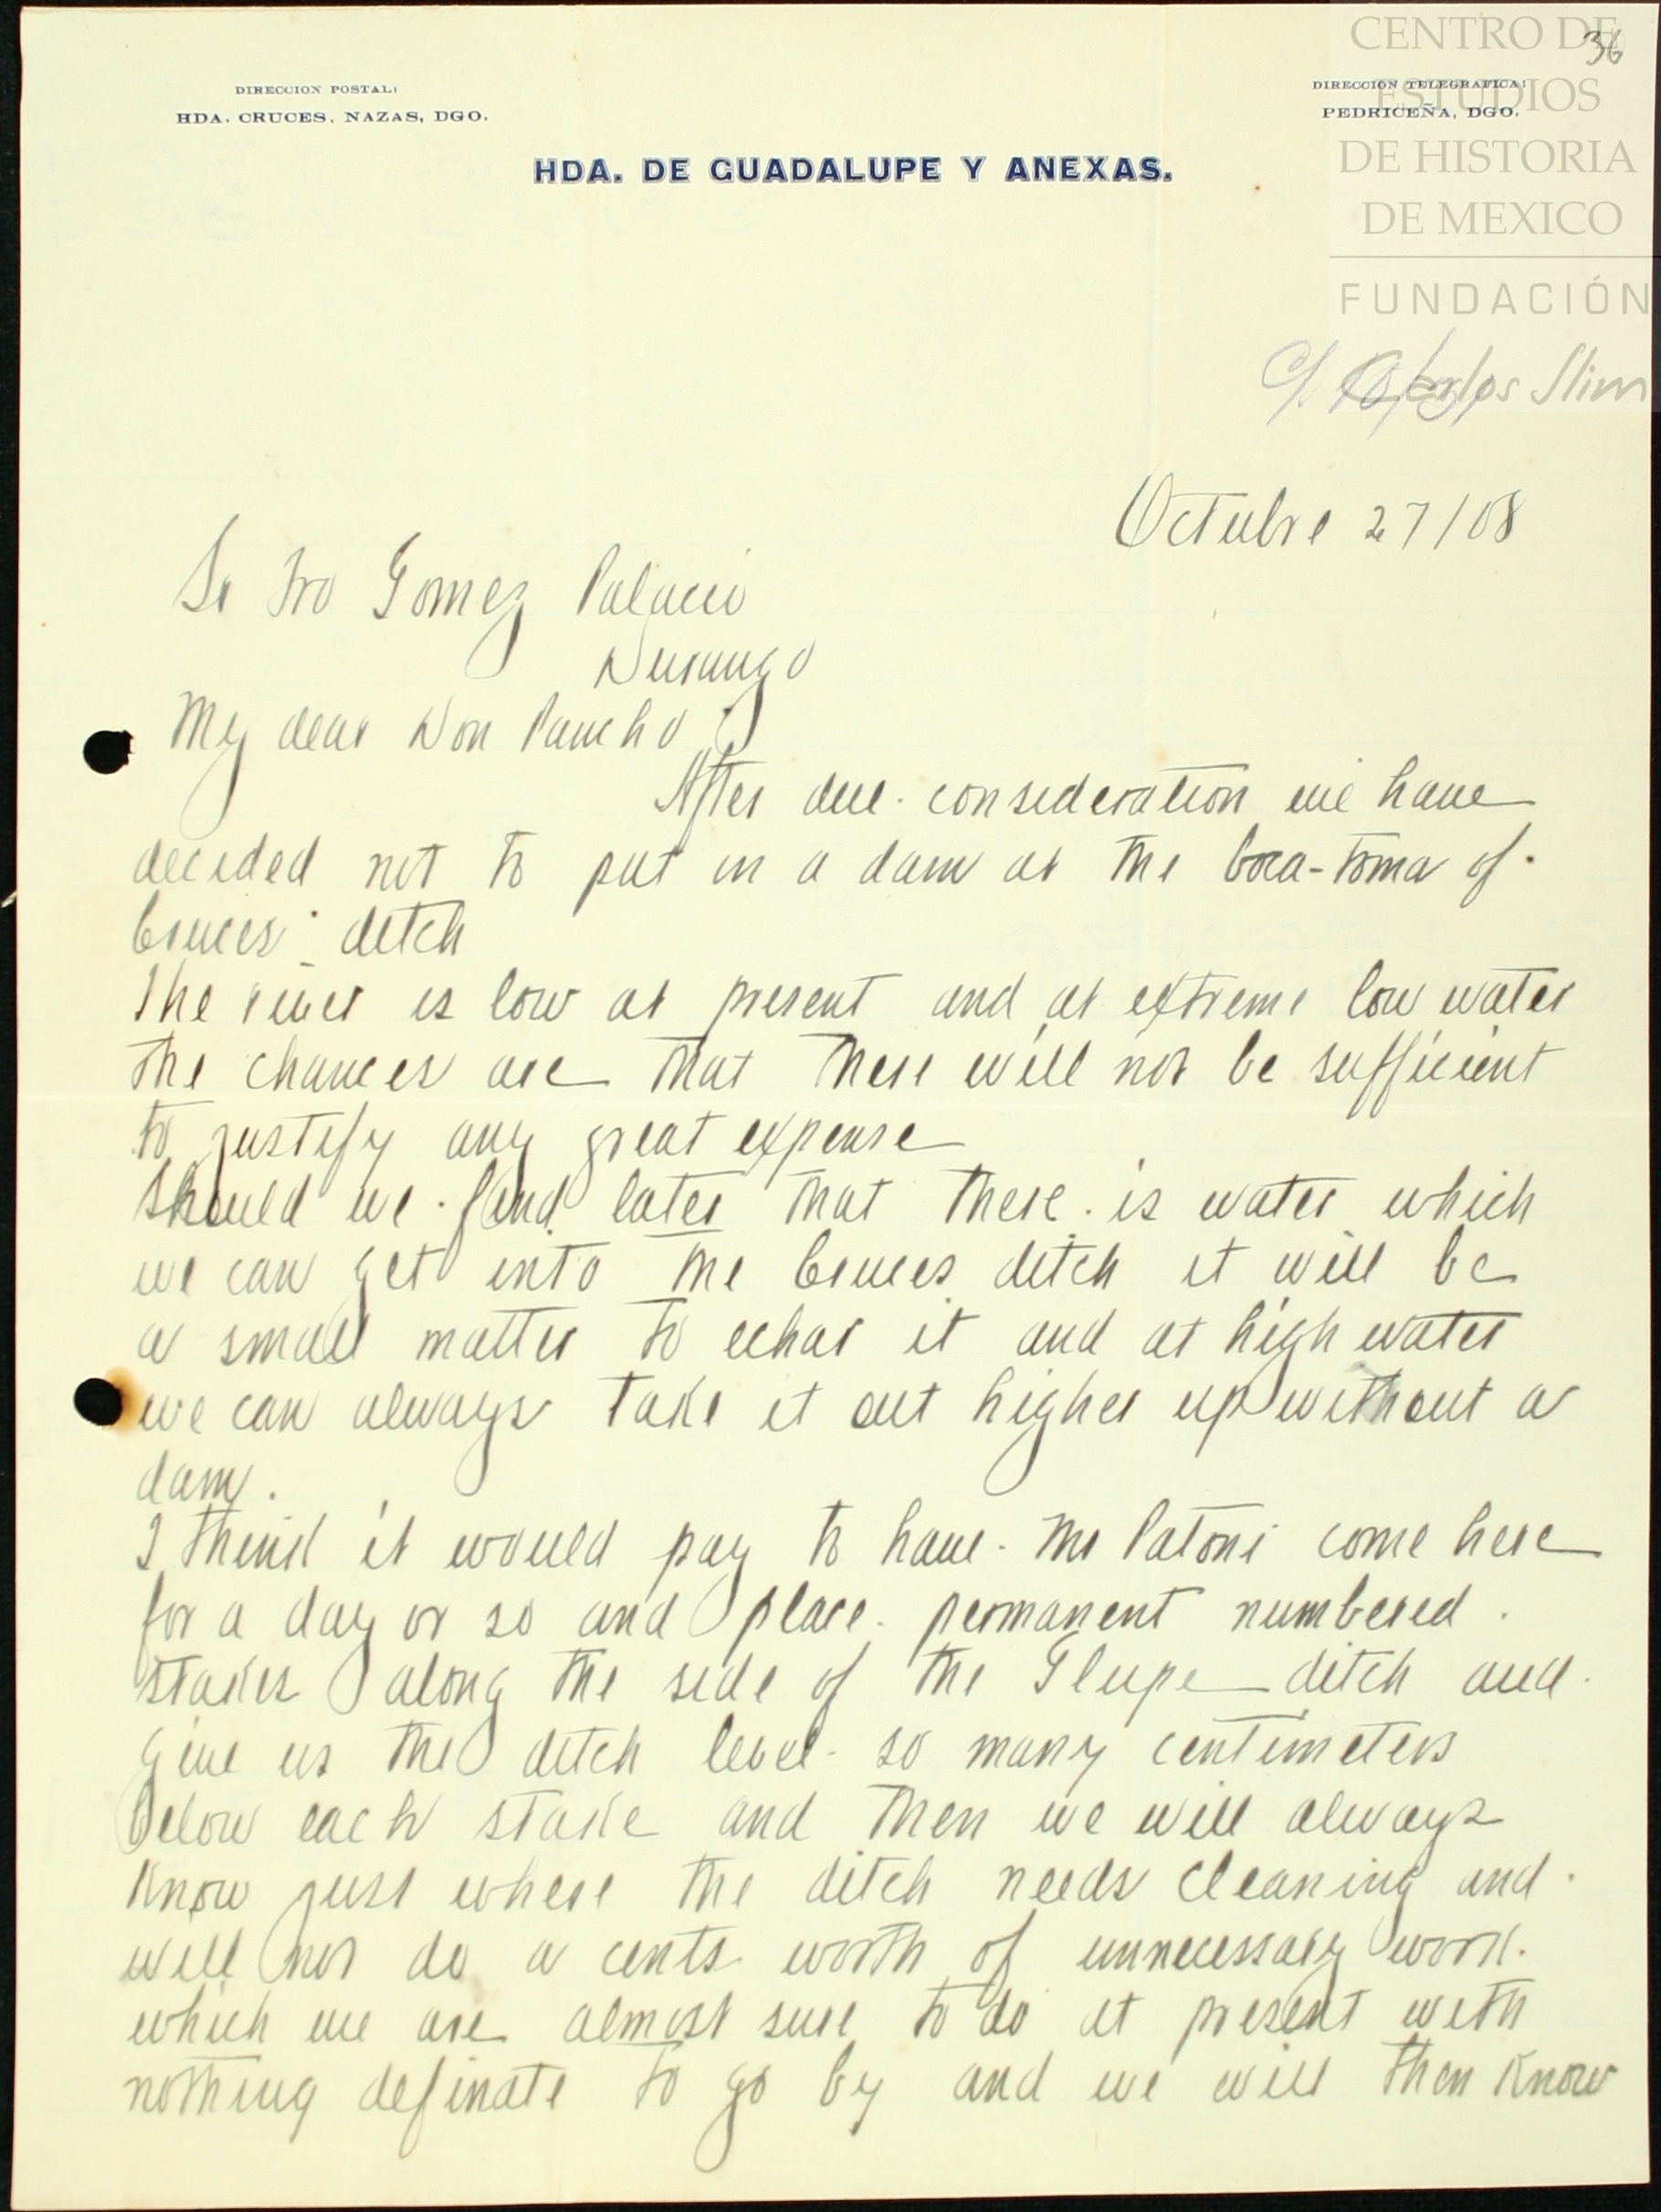 36
CENTRO DE
ESTUDIOS
DE HISTORIA
DE MEXICO
FUNDACIÓN
Carlos Slim
DIRECCION POSTAL:
HDA. CRUCES, NAZAS, DGO.
DIRECCION TELEGRAFICA:
PEDRICEÑA, DGO.
HDA. DE GUADALUPE Y ANEXAS.
Octubre 27/08
Sr Fco Gomez Palacio
Durango
My dear Don Pancho
After due consideration we have
decided not to put in a dam at the boca-toma of
Cruces ditch
The river is low at present and at extreme low water
the chances are that there will not be sufficient
to justify any great expense
Should we find later that there is water which
we can get into the Cruces ditch it will be
a small matter to echar it and at high water
we can always take it out higher up without a
dam.
I think it would pay to have Mr Patoni come here
for a day or so and place permanent numbered
stakes along the side of the Glupe ditch and
give us the ditch level so many centimeters
below each stake and then we will always
know just where the ditch needs cleaning and
will not do a cents worth of unnecessary work
which we are almost sure to do at present with
nothing definate to go by and we will then know